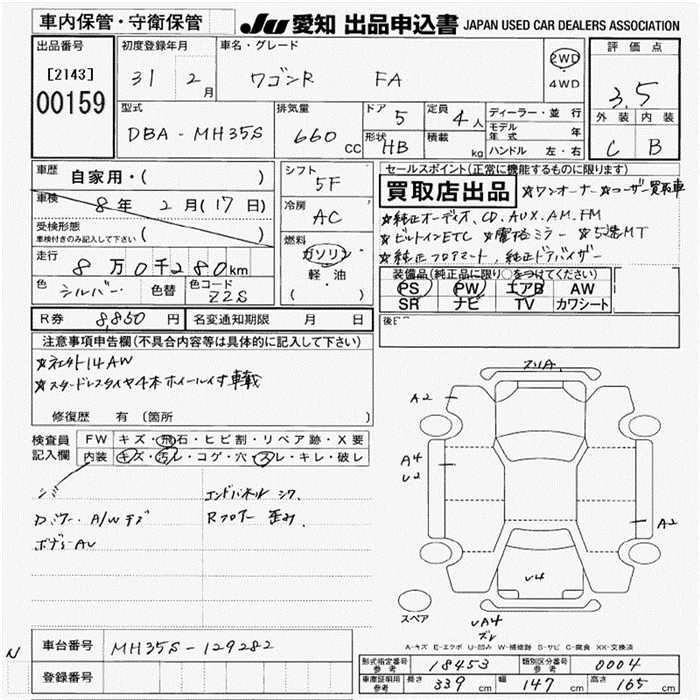 車内保管・守衛保管 JU 愛知 出品申込書 JAPAN USED CAR DEALERS ASSOCIATION
出品番号 初度登録年月 車名・グレード 評価点
[2143] 31年 2月 ワゴンR FA 2WD 4WD 3.5
00159 外装 内装
型式 排気量 ドア 定員 ディーラー・並行
DBA-MH35S 660cc 5 4人 モデル年式 年
形状 HB 積載 kg ハンドル 左・右 C B
車歴 自家用・( ) シフト 5F セールスポイント(正常に機能するものに限り)
車検 8年 2月(17日) 冷房 AC 買取店出品 ☆ワンオーナー☆ユーザー買取車
受検形態 ☆純正オーディオ、CD.AUX.AM.FM
車検付きのみ記入して下さい ( ) 燃料 ☆ビルトインETC ☆電格ミラー ☆5速MT
走行 8万0千280km ガソリン ☆純正フロアマット、純正ドアバイザー
軽・油
色 シルバー 色替 色コード Z2S ( ) 装備品(純正品に限り○をつけてください)
PS PW エアB AW
SR ナビ TV カワシート
R券 8,850円 名変通知期限 月 日 後日
注意事項申告欄(不具合内容等は具体的に記入して下さい)
☆社外14AW
☆スタッドレスタイヤ4本ホイール付車載
修復歴 有 (箇所
検査員記入欄 FW キズ・飛石・ヒビ割・リペア跡・X要
内装 キズ・汚レ・コゲ・穴・スレ・キレ・破レ
シミ エンドパネル シワ
Dミラー・A/Wキズ Rフロアー 歪み
ボデーAU
スリA
A2
A4
U2
A2
U4
UA4
ズレ
スペア
A-キズ E-エクボ U-凹み W-補修跡 S-サビ C-腐食 XX-交換済
N 車台番号 MH35S-129282
登録番号
形式指定番号 参考 18453 類別区分番号 参考 0004
車庫証明用 参考 長さ 339cm 幅 147cm 高さ 165cm